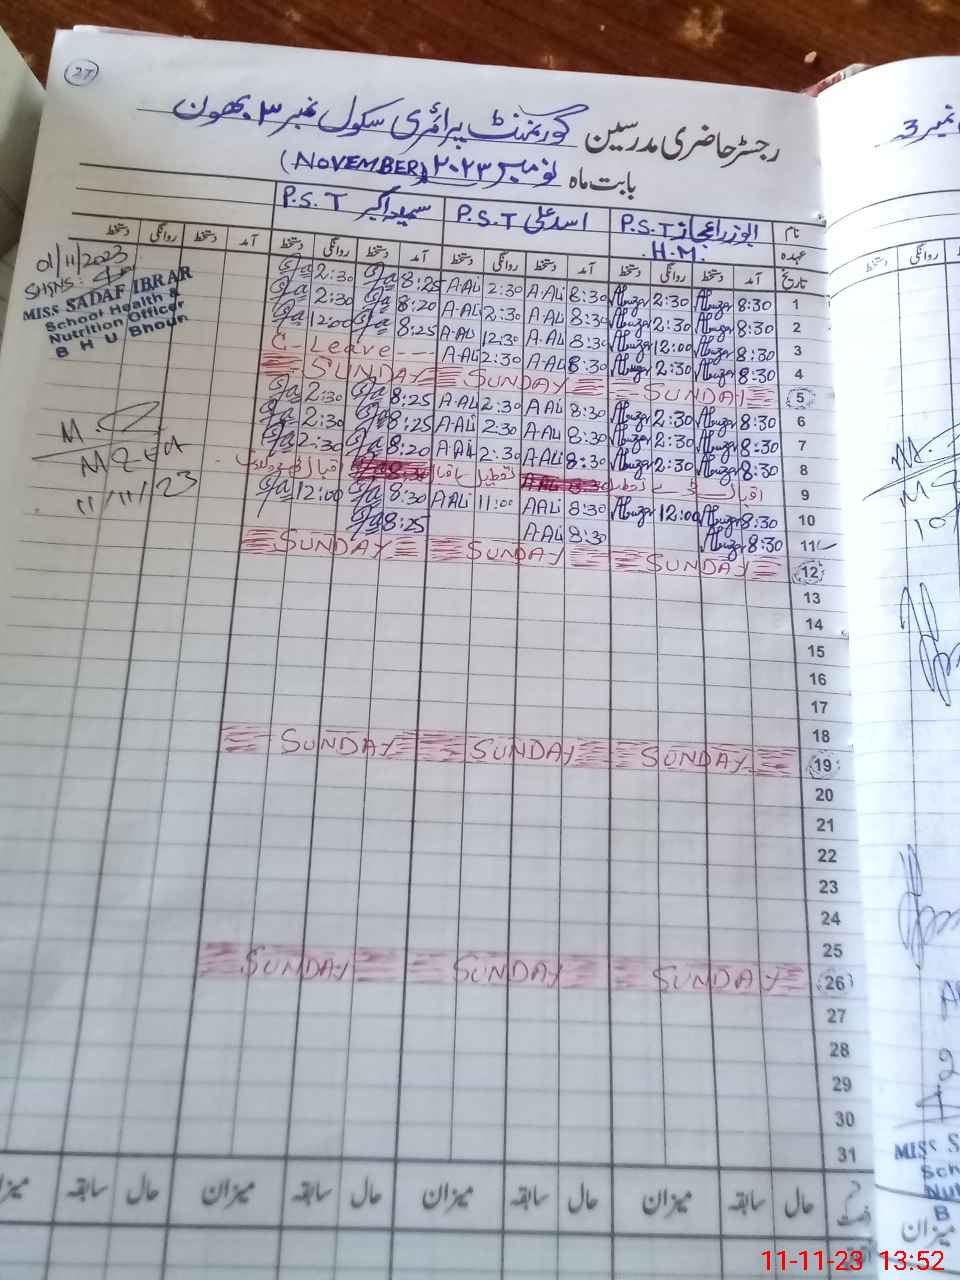 27
رجسٹر حاضری مدرسین گورنمنٹ پرائمری سکول نمبر ۳ بھون
بابت ماہ نومبر ۲۰۲۳ (NOVEMBER)
نام P.S.T اسد علی P.S.T P.S.T
عہدہ H.M.
تاریخ آمد دستخط روانگی دستخط آمد دستخط روانگی دستخط آمد دستخط روانگی دستخط آمد دستخط روانگی دستخط
1 8:30 2:30 8:30 A-Ali 2:30 A-Ali 8:25 2:30
2 8:30 2:30 8:30 A-Ali 2:30 A-Ali 8:20 2:30
3 8:30 12:00 8:30 A-Ali 12:30 A-Ali 8:25 12:00
4 8:30 2:30 8:30 A-Ali 2:30 A-Ali C-Leave
5 SUNDAY SUNDAY SUNDAY
6 8:30 2:30 8:30 A-Ali 2:30 A-Ali 8:25 2:30
7 8:30 2:30 8:30 A-Ali 2:30 A-Ali 8:25 2:30
8 8:30 2:30 8:30 A-Ali 2:30 A-Ali 8:20 2:30
9 اقبال تعطیل
10 8:30 12:00 8:30 A-Ali 11:00 A-Ali 8:30 12:00
11 8:30 8:30 A-Ali 8:25
12 SUNDAY SUNDAY SUNDAY
13
14
15
16
17
18
19 SUNDAY SUNDAY SUNDAY
20
21
22
23
24
25
26 SUNDAY SUNDAY SUNDAY
27
28
29
30
31
حال سابقہ میزان حال سابقہ میزان حال سابقہ میزان حال سابقہ
01/11/2023
SH&NS:
MISS SADAF IBRAR
School Health &
Nutrition Officer
B H U Bhoun
11/11/23
نمبر 3
دستخط
MISS S
Sch
Nut
B
میزان
11-11-23 13:52